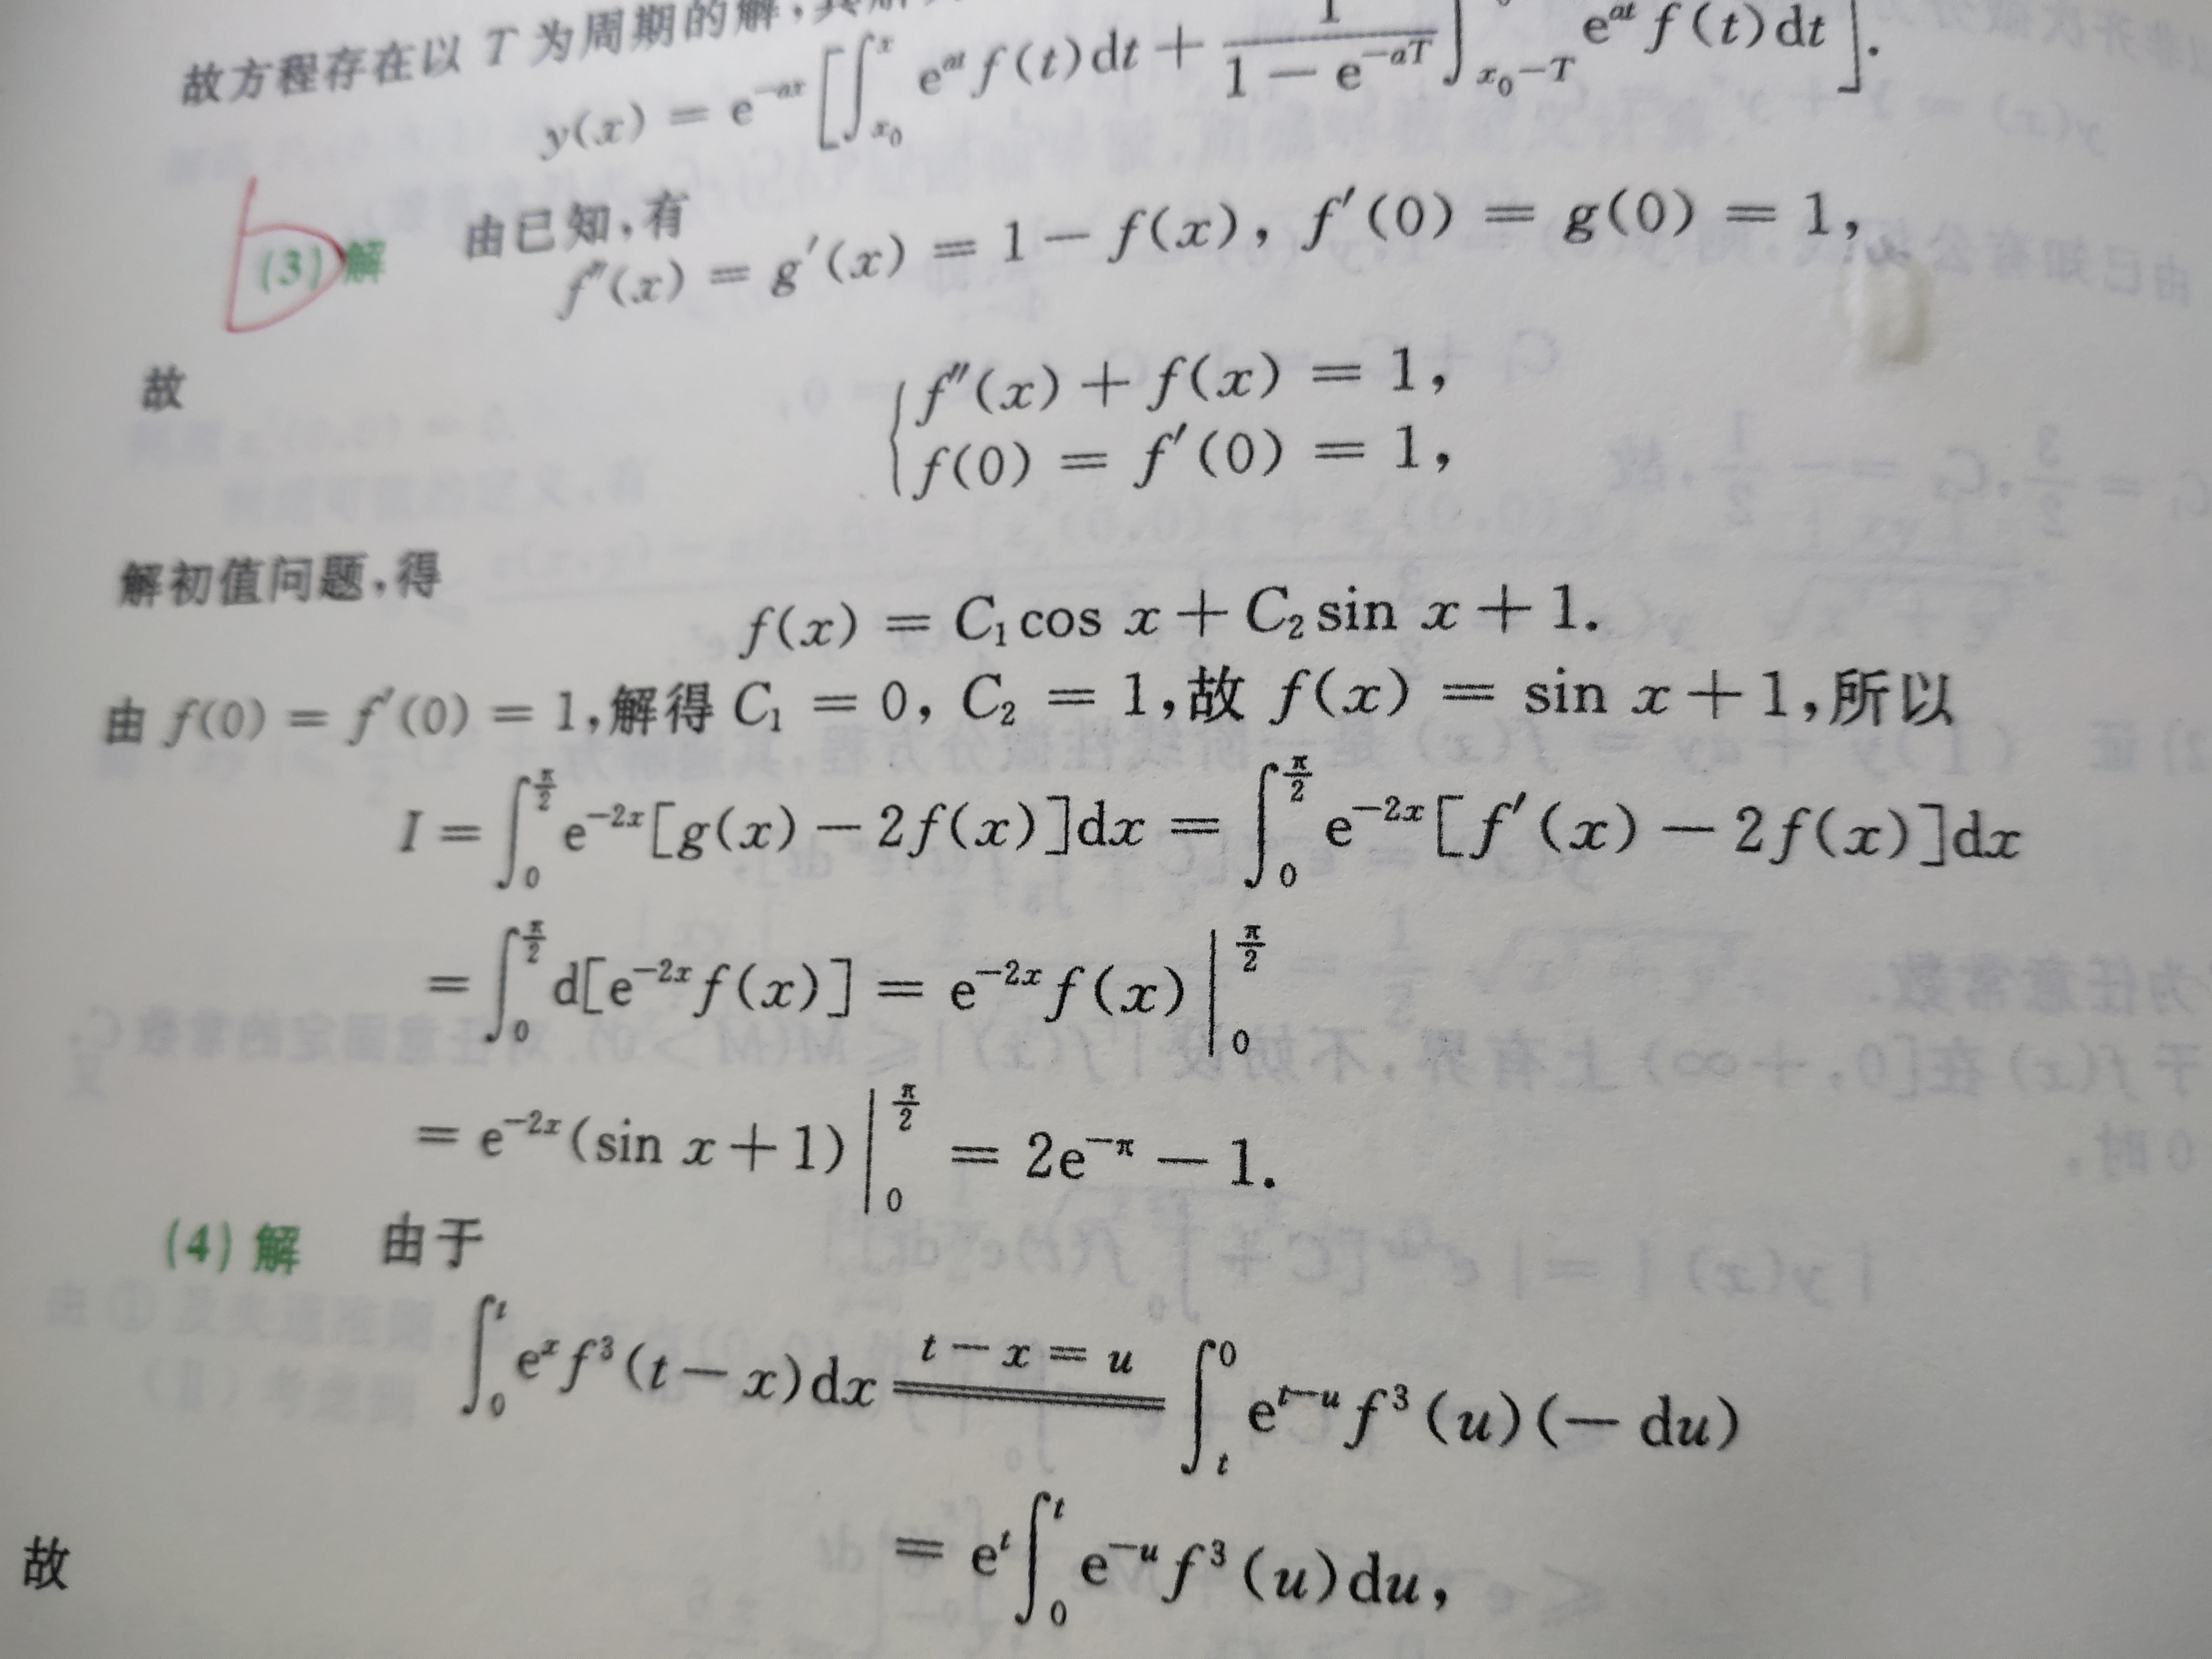 故方程存在以 T 为周期的解,
y(x) = e^{-ax}[∫_{x_0}^{x} e^{at} f(t)dt + \frac{1}{1 - e^{-aT}} ∫_{x_0-T} e^{at} f(t)dt].
(3) 解 由已知,有
f″(x) = g′(x) = 1 - f(x), f′(0) = g(0) = 1,
故
{ f″(x) + f(x) = 1,
f(0) = f′(0) = 1,
解初值问题,得
f(x) = C₁cos x + C₂sin x + 1.
由 f(0) = f′(0) = 1,解得 C₁ = 0, C₂ = 1,故 f(x) = sin x + 1,所以
I = ∫_{0}^{\frac{π}{2}} e^{-2x}[g(x) - 2f(x)]dx = ∫_{0}^{\frac{π}{2}} e^{-2x}[f′(x) - 2f(x)]dx
= ∫_{0}^{\frac{π}{2}} d[e^{-2x}f(x)] = e^{-2x}f(x)|_{0}^{\frac{π}{2}}
= e^{-2x}(sin x + 1)|_{0}^{\frac{π}{2}} = 2e^{-π} - 1.
(4) 解 由于
∫_{0}^{t} e^{x}f³(t - x)dx \xlongequal{t - x = u} ∫_{t}^{0} e^{t-u}f³(u)(- du)
= e^{t}∫_{0}^{t} e^{-u}f³(u)du,
故